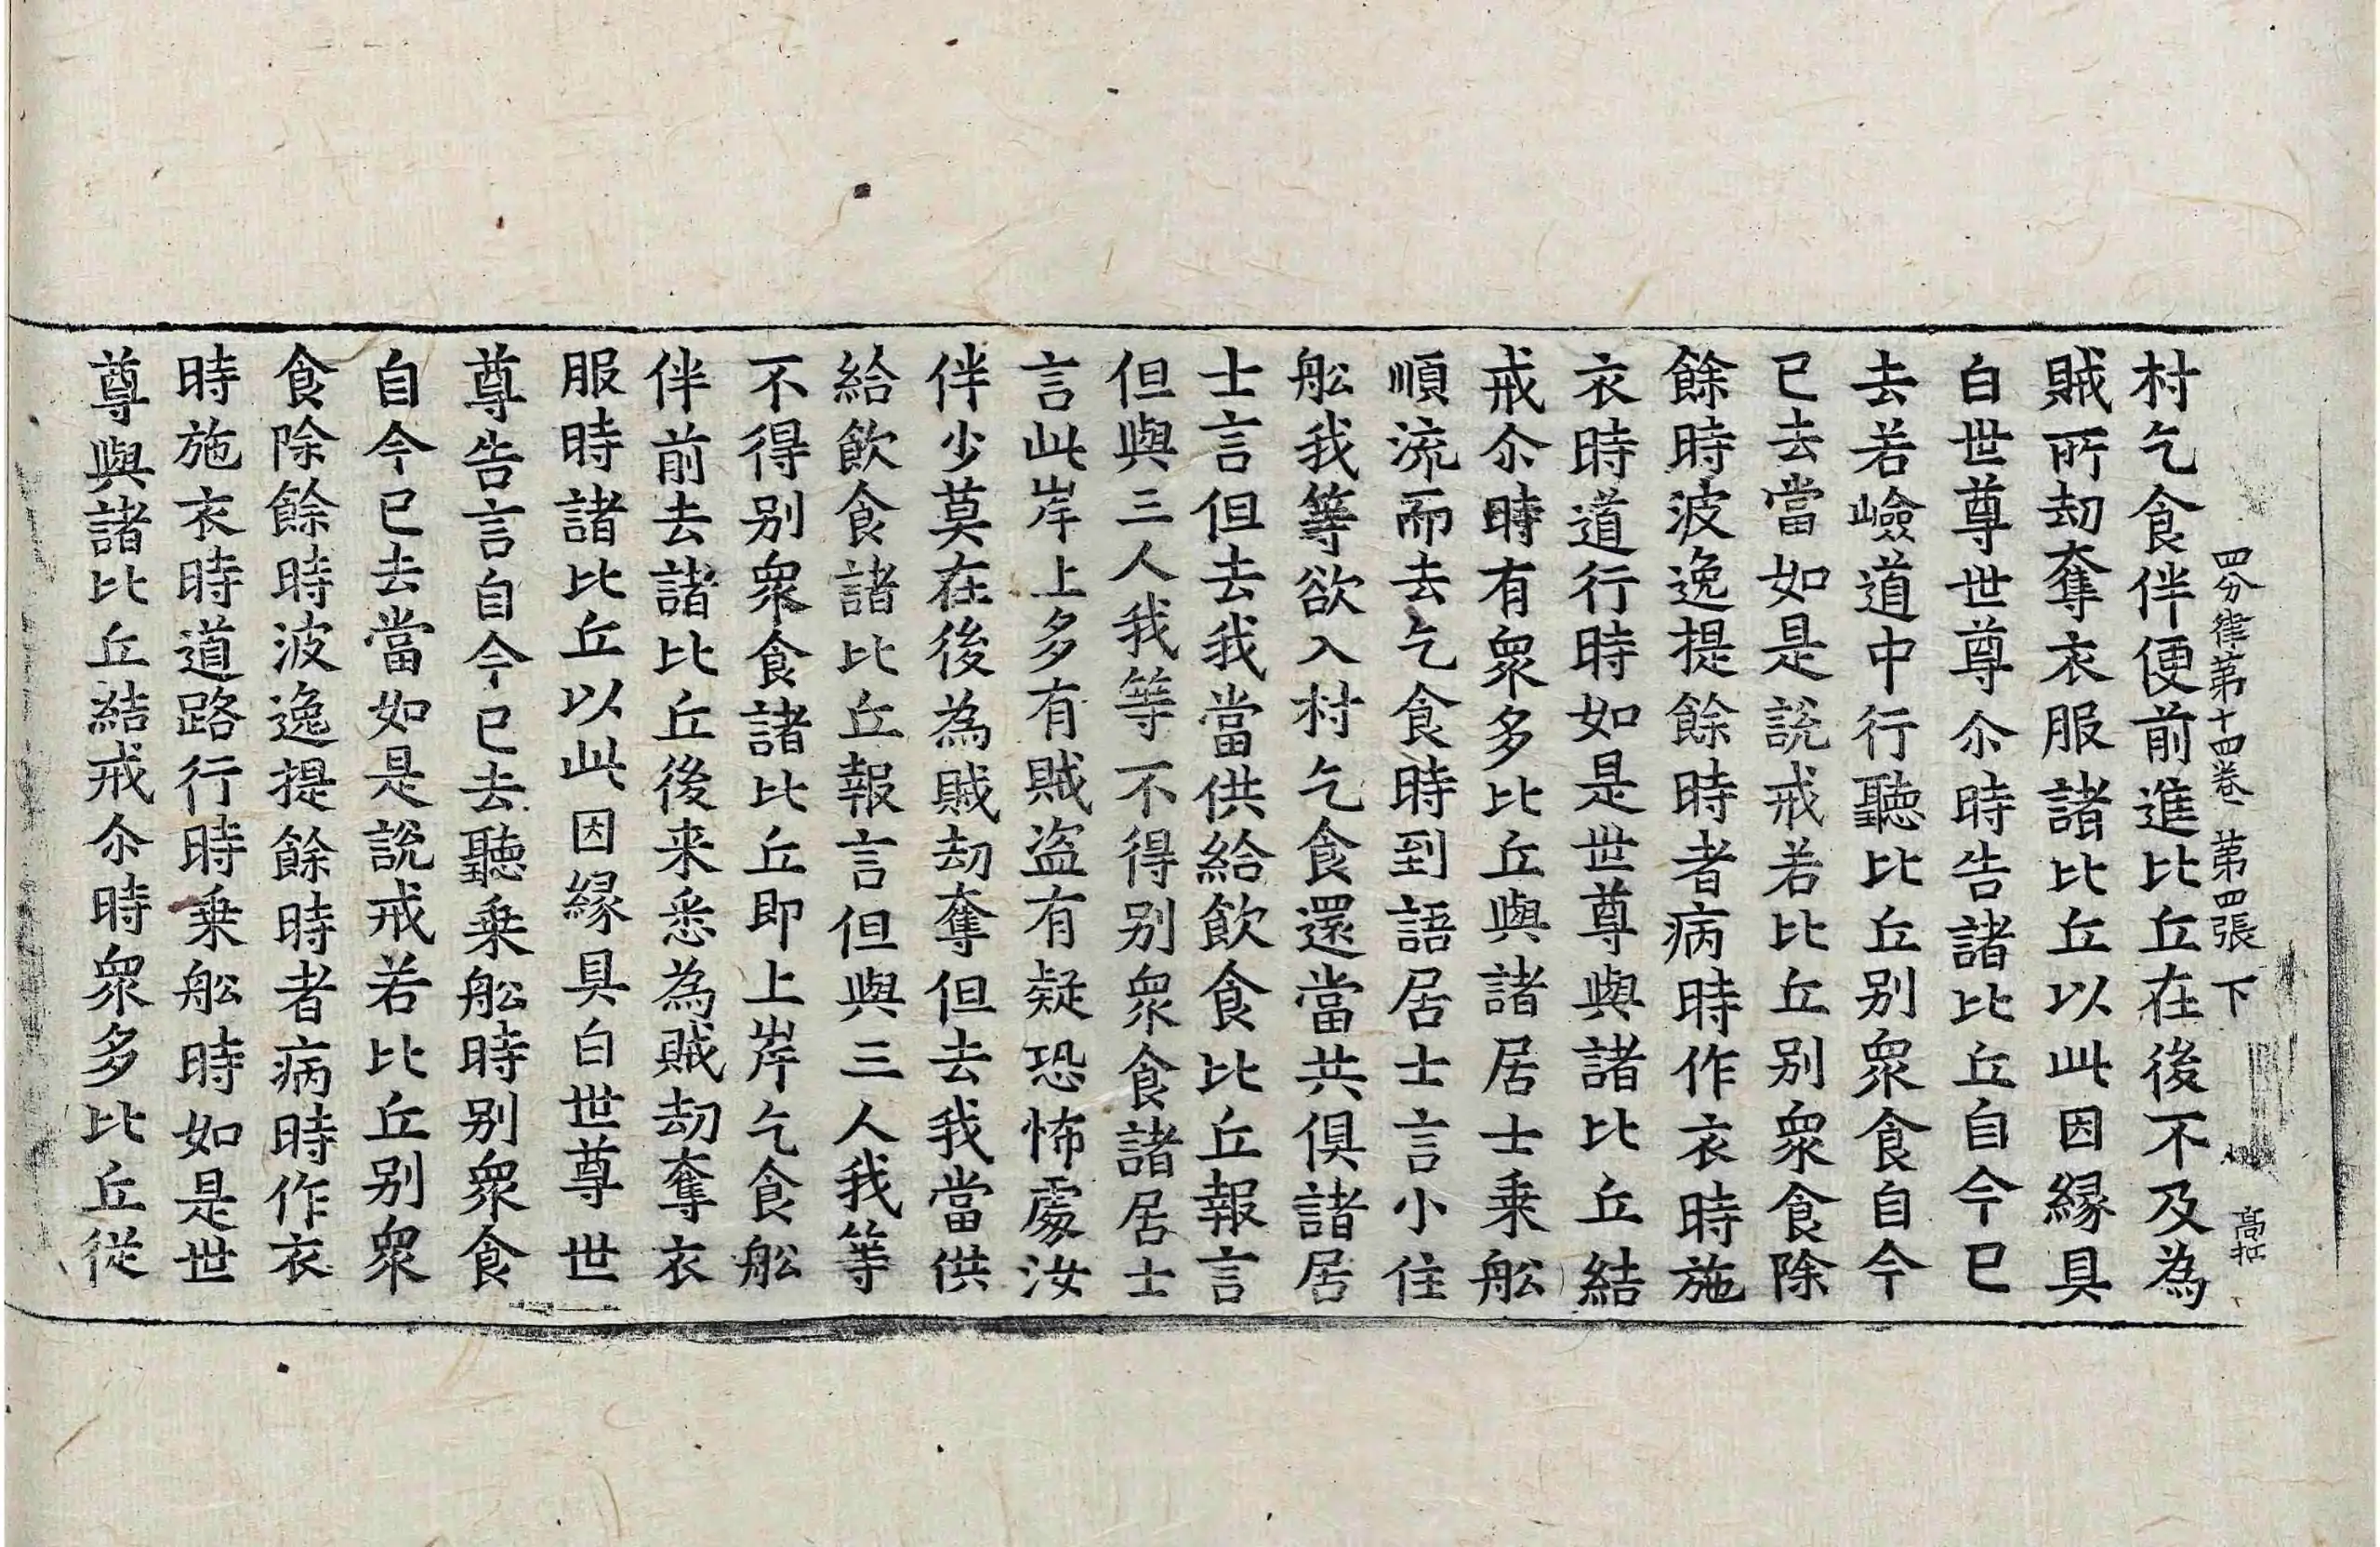 四分律第十四卷 第四張 下
村乞食伴便前進比丘在後不及為
賊所劫奪衣服諸比丘以此因緣具
白世尊世尊尒時告諸比丘自今已
去若嶮道中行聽比丘別眾食自今
已去當如是說戒若比丘別眾食除
餘時波逸提餘時者病時作衣時施
衣時道行時如是世尊與諸比丘結
戒尒時有眾多比丘與諸居士乗舩
順流而去乞食時到語居士言小住
舩我等欲入村乞食還當共俱諸居
士言但去我當供給飲食比丘報言
但與三人我等不得別眾食諸居士
言此岸上多有賊盗有疑恐怖處汝
伴少莫在後為賊劫奪但去我當供
給飲食諸比丘報言但與三人我等
不得別眾食諸比丘即上岸乞食舩
伴前去諸比丘後来悉為賊劫奪衣
服時諸比丘以此因緣具白世尊世
尊告言自今已去聽乗舩時別眾食
自今已去當如是說戒若比丘別眾
食除餘時波逸提餘時者病時作衣
時施衣時道路行時乗舩時如是世
尊與諸比丘結戒尒時眾多比丘從